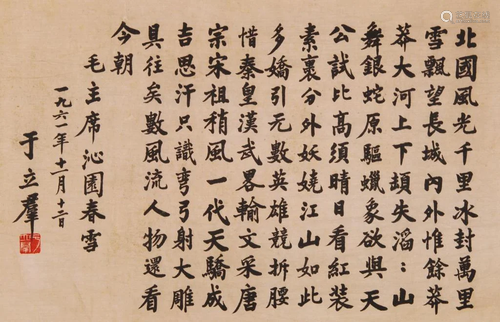 北國風光千里冰封萬里
雪飄望長城內外惟餘莽
莽大河上下頓失滔:山
舞銀蛇原驅蠟象欲與天
公試比高須晴日看紅裝
素裹分外妖嬈江山如此
多嬌引无數英雄競折腰
惜秦皇漢武畧輸文采唐
宗宋祖稍風一代天驕成
吉思汗只識彎弓射大雕
具往矣數風流人物還看
今朝
毛主席沁園春雪
一九六一年
于立羣